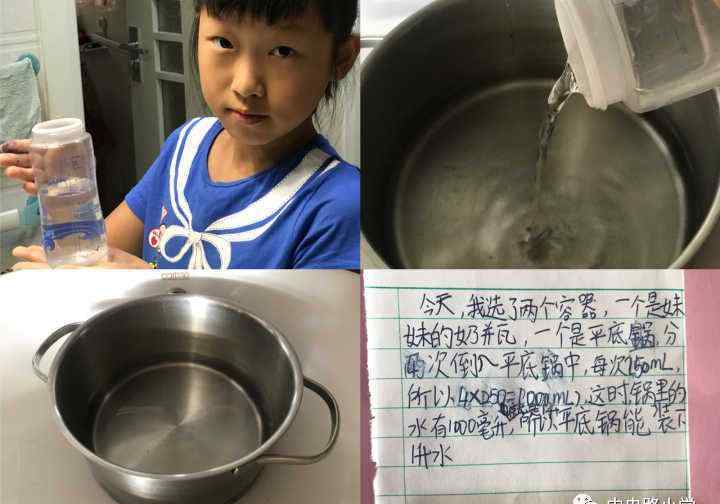 今天,我选了两个容器,一个是妹
妹的奶瓶,一个是平底锅,分
次倒入平底锅中,每次250mL,
所以4×250=1000(mL),这时锅里的
水有1000毫升,所以平底锅能装下
1升水
中央路小学